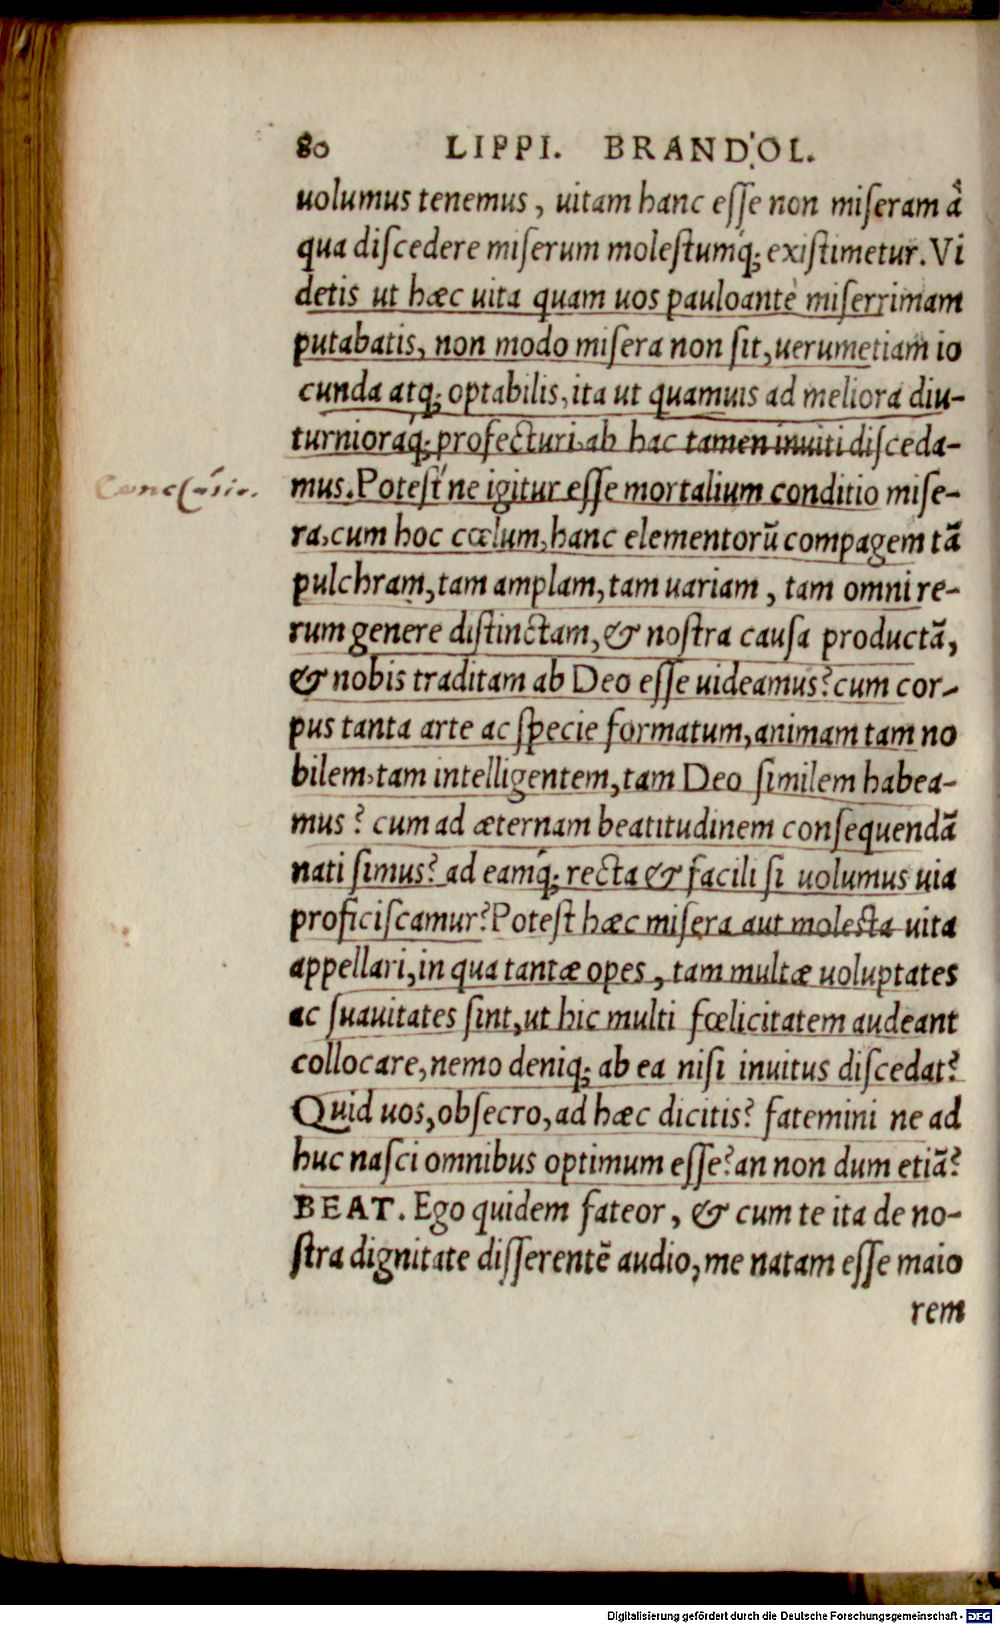 80 LIPPI. BRANDOL.
uolumus tenemus, uitam hanc eſſe non miſeram â
qua diſcedere miſerum moleſtumq́; exiſtimetur. Vi
detis ut hæc uita quam uos pauloantè miſerrimam
putabatis, non modo miſera non ſit, uerumetiam io
cunda atq; optabilis, ita ut quamuis ad meliora diu-
turnioraq́; profecturi, ab hac tamen inuiti diſceda-
Conclusio.
mus. Poteſt ne igitur eſſe mortalium conditio miſe-
ra, cum hoc cœlum, hanc elementorũ compagem tã
pulchram, tam amplam, tam uariam, tam omni re-
rum genere diſtinctam, & noſtra cauſa productã,
& nobis traditam ab Deo eſſe uideamus? cum cor-
pus tanta arte ac ſpecie formatum, animam tam no
bilem, tam intelligentem, tam Deo ſimilem habea-
mus? cum ad æternam beatitudinem conſequendã
nati ſimus? ad eamq́; recta & facili ſi uolumus uia
proficiſcamur? Poteſt hæc miſera aut moleſta uita
appellari, in qua tantæ opes, tam multæ uoluptates
ac ſuauitates ſint, ut hic multi fœlicitatem audeant
collocare, nemo deniq; ab ea niſi inuitus diſcedat?
Quid uos, obſecro, ad hæc dicitis? fatemini ne ad
huc naſci omnibus optimum eſſe? an non dum etiã?
BEAT. Ego quidem fateor, & cum te ita de no-
ſtra dignitate diſſerentẽ audio, me natam eſſe maio
rem
Digitalisierung gefördert durch die Deutsche Forschungsgemeinschaft - DFG